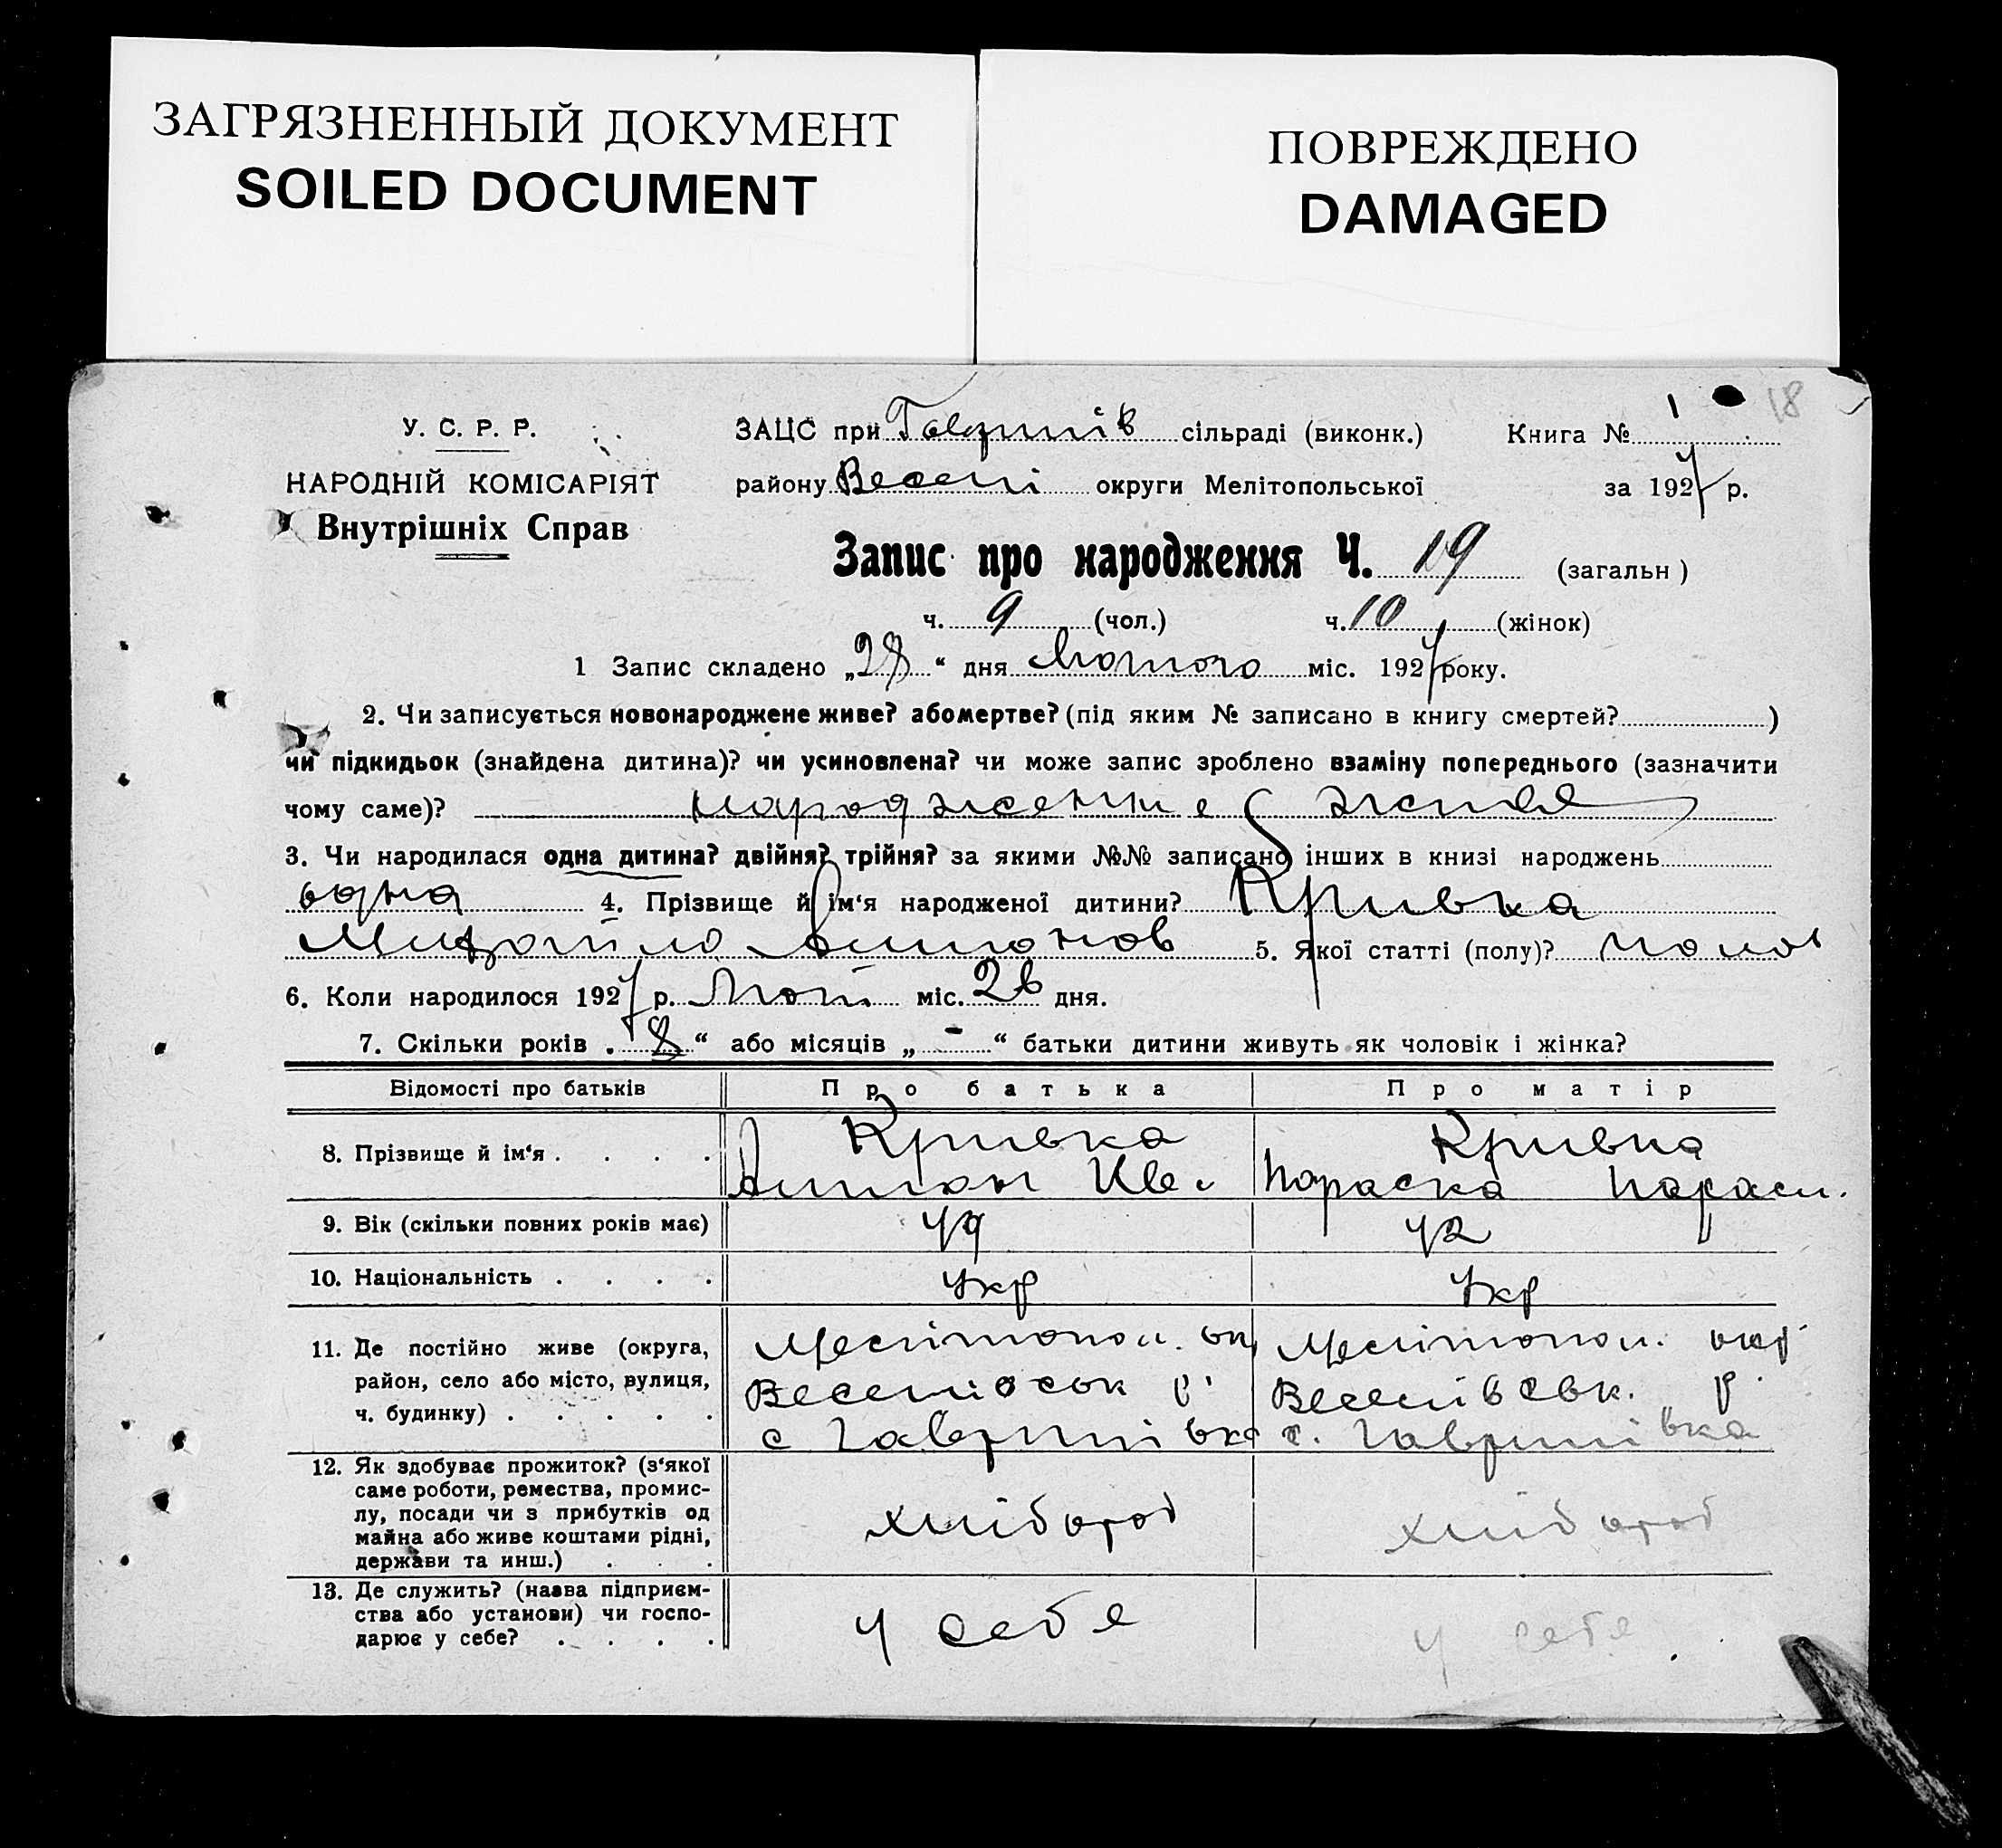 ЗАГРЯЗНЕННЫЙ ДОКУМЕНТ
SOILED DOCUMENT
ПОВРЕЖДЕНО
DAMAGED
18
У. С. Р. Р.
НАРОДНІЙ КОМІСАРІЯТ
Внутрішніх Справ
ЗАЦС при Гаврилів сільраді (виконк.) Книга № 1
району Веселі округи Мелітопольської за 1927 р.
Запис про народження Ч. 19 (загальн)
ч. 9 (чол.) ч. 10 (жінок)
1 Запис складено „28“ дня Лютого міс. 1927 року.
2. Чи записується новонароджене живе? або мертве? (під яким № записано в книгу смертей? )
чи підкидьок (знайдена дитина)? чи усиновлена? чи може запис зроблено взаміну попереднього (зазначити
чому саме)? народженне живе
3. Чи народилася одна дитина? двійня? трійня? за якими №№ записано інших в книзі народжень
одна 4. Прізвище й ім‘я народженої дитини? Кривка
Михайло Антонов 5. Якої статті (полу)? чолов
6. Коли народилося 1927 р. Лют міс. 26 дня.
7. Скільки років „8“ або місяців „-“ батьки дитини живуть як чоловік і жінка?
Відомості про батьків Про батька Про матір
8. Прізвище й ім‘я . . . . Кривка Кривка
Антон Ів. Параска
9. Вік (скільки повних років має) 49 42
10. Національність . . . . Укр Укр
11. Де постійно живе (округа, Мелітопол. ок Мелітопол. окр
район, село або місто, вулиця, Веселівськ р. Веселівськ. р.
ч. будинку) . . . . . с Гаврилівка с. Гаврилівка
12. Як здобуває прожиток? (з‘якої
саме роботи, ремества, промис-
лу, посади чи з прибутків од
майна або живе коштами рідні,
держави та инш.) . . . хлібороб хлібороб
13. Де служить? (назва підприєм-
ства або установи) чи госпо-
дарює у себе? . . . . у себе у себе